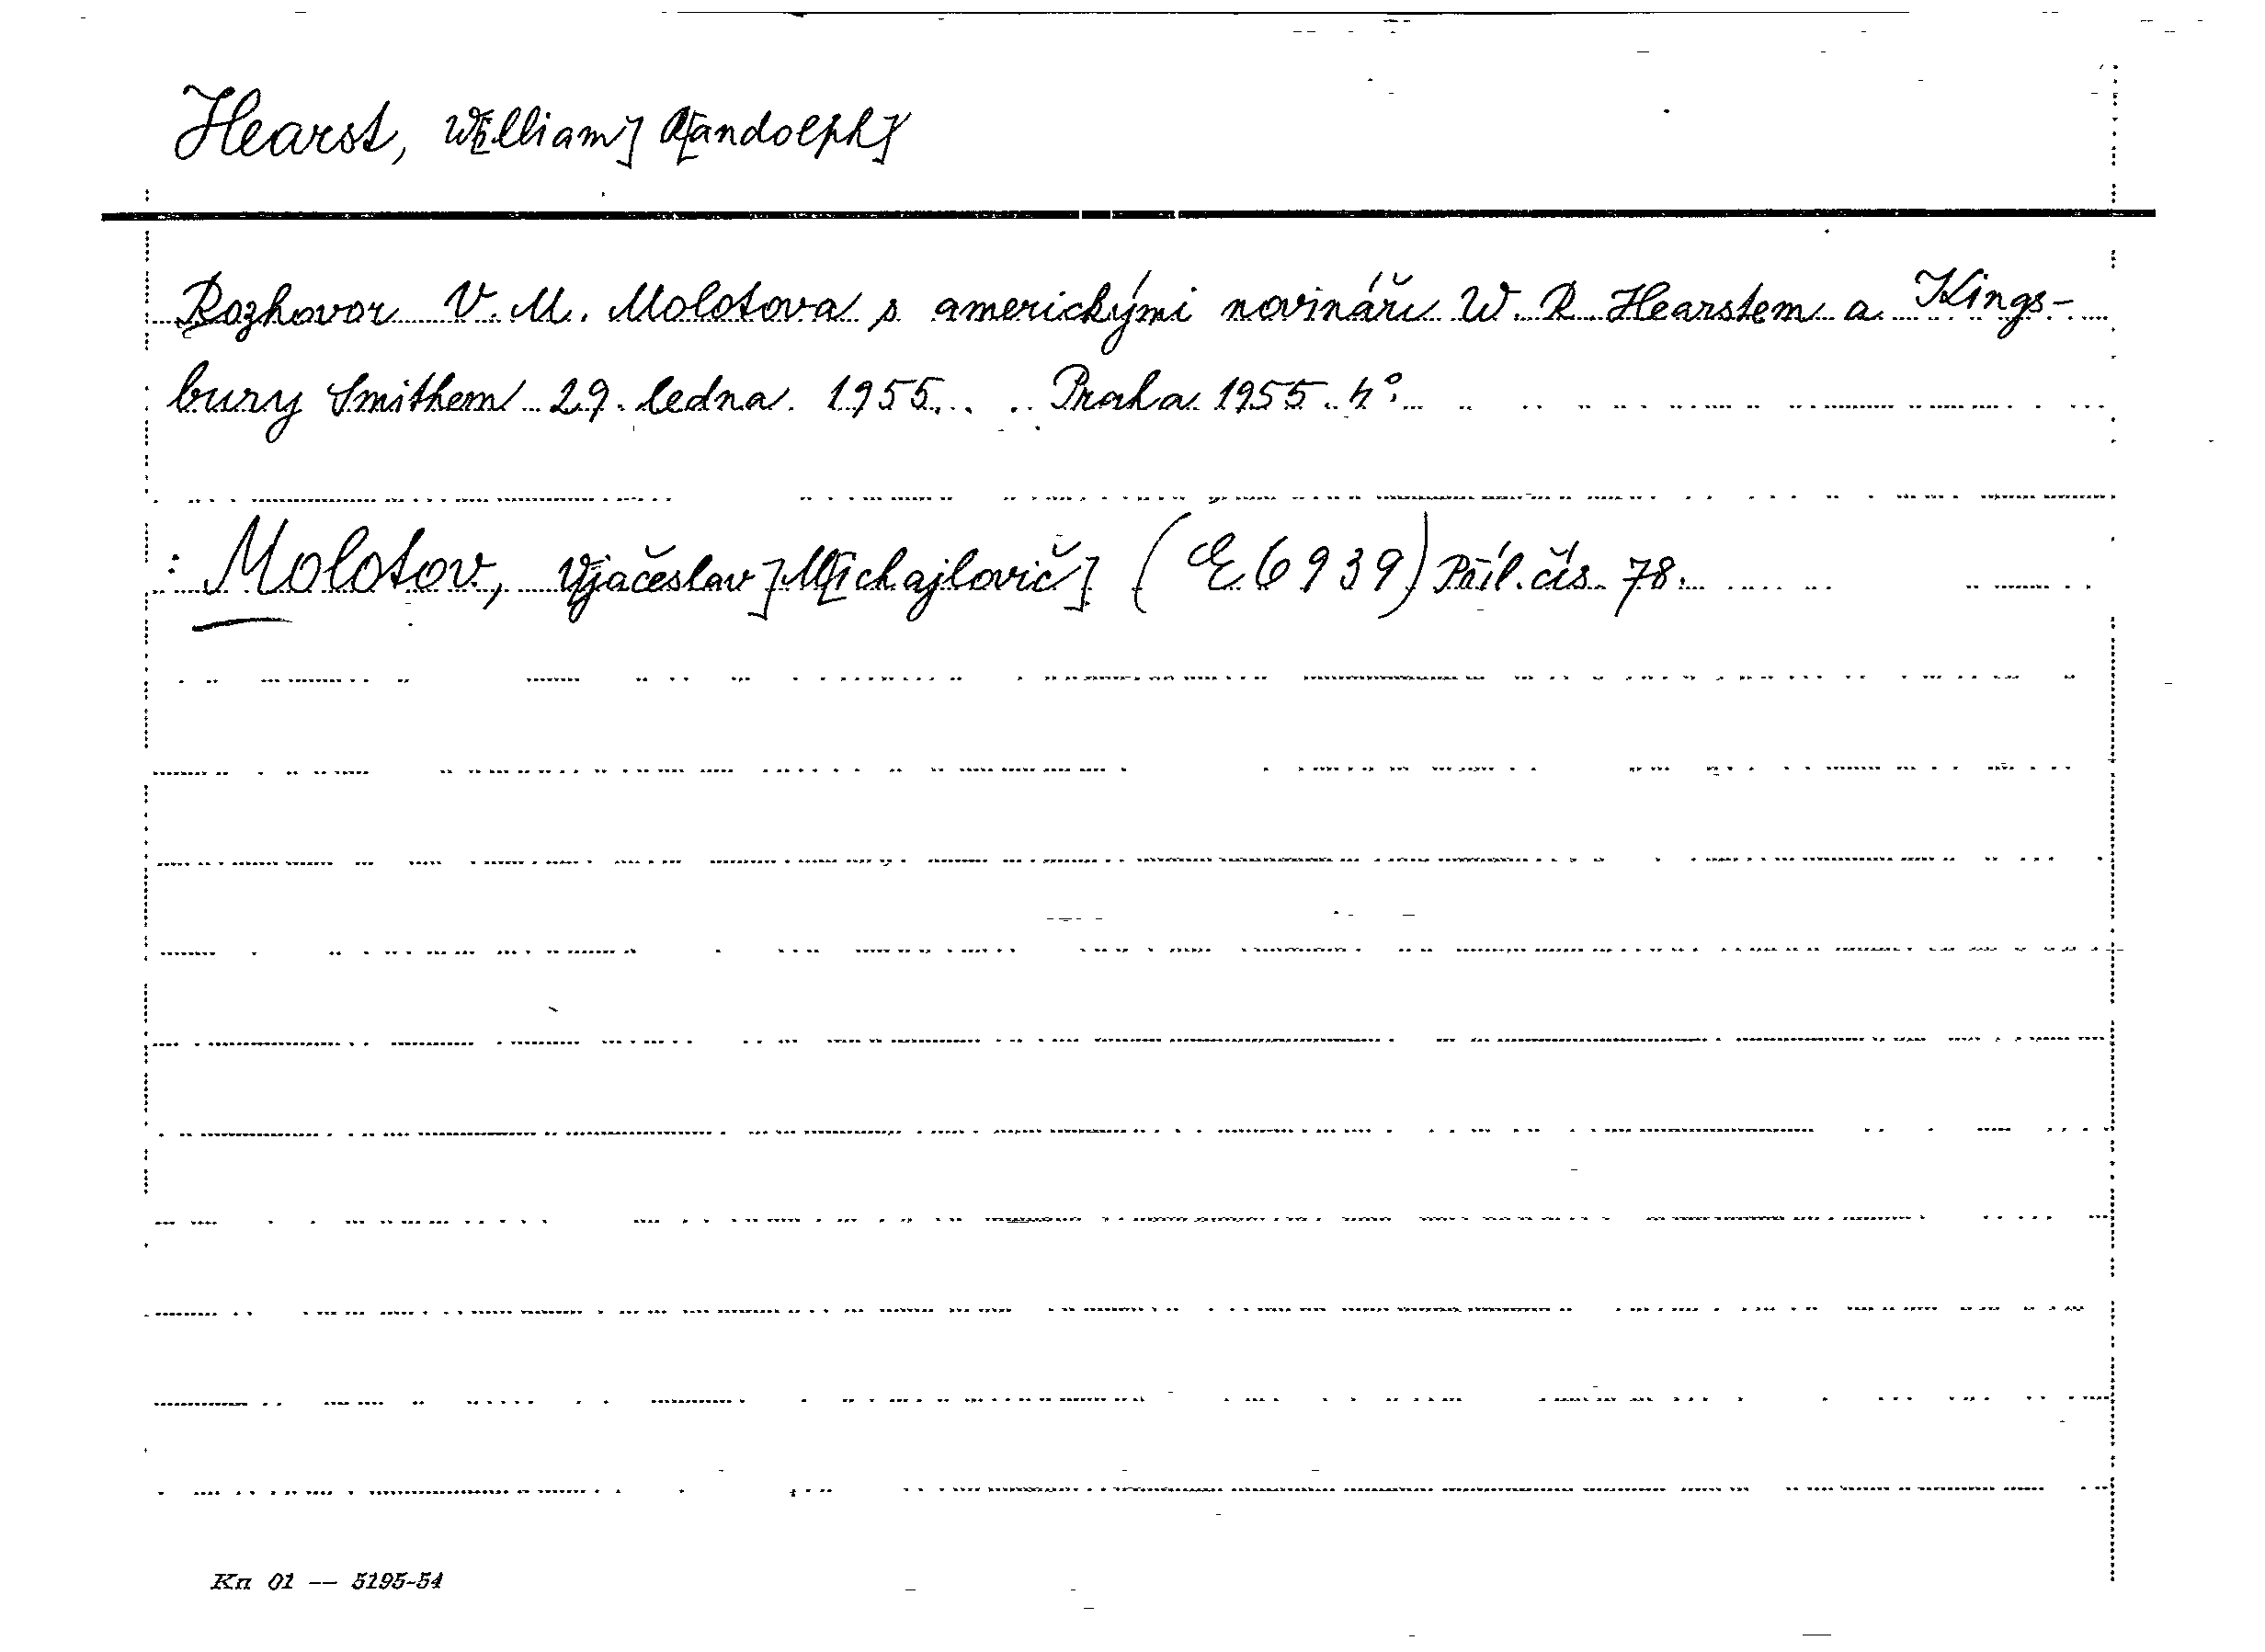 Hearst, W[illiam] R[andolph]
Rozhovor V. M. Molotova s americkými novináři W. R. Hearstem a Kings-
bury Smithem 29. ledna 1955. Praha 1955. 4°.
: Molotov, V[jačeslav] M[ichajlovič] (E 6939) Příl. čís. 78.
Kn 01 — 5195-54